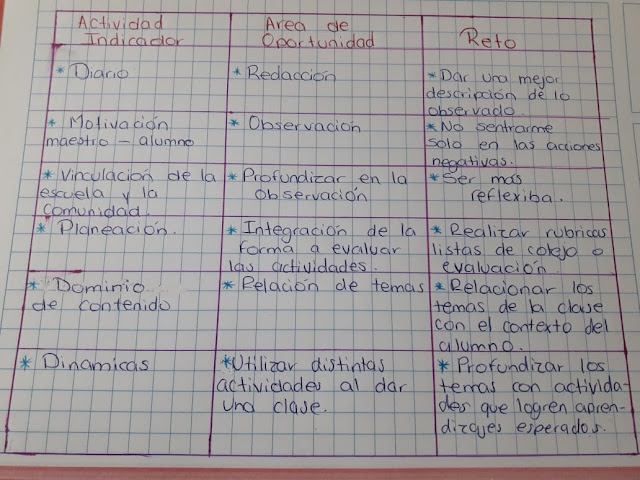 Actividad
Indicador
Area de
Oportunidad
Reto
* Diario
* Redacción
* Dar una mejor
descripción de lo
observado.
* Motivación
maestro - alumno
* Observación
* No sentrarme
solo en las acciones
negativas.
* Vinculación de la
escuela y la
comunidad.
* Profundizar en la
observación
* Ser más
reflexiba.
* Planeación.
* Integración de la
forma a evaluar
las actividades.
* Realizar rubricas
listas de cotejo o
evaluación
* Dominio
de contenido
* Relación de temas
* Relacionar los
temas de la clase
con el contexto del
alumno.
* Dinamicas
* Utilizar distintas
actividades al dar
una clase.
* Profundizar los
temas con activida-
des que logren apren-
dizajes esperados.